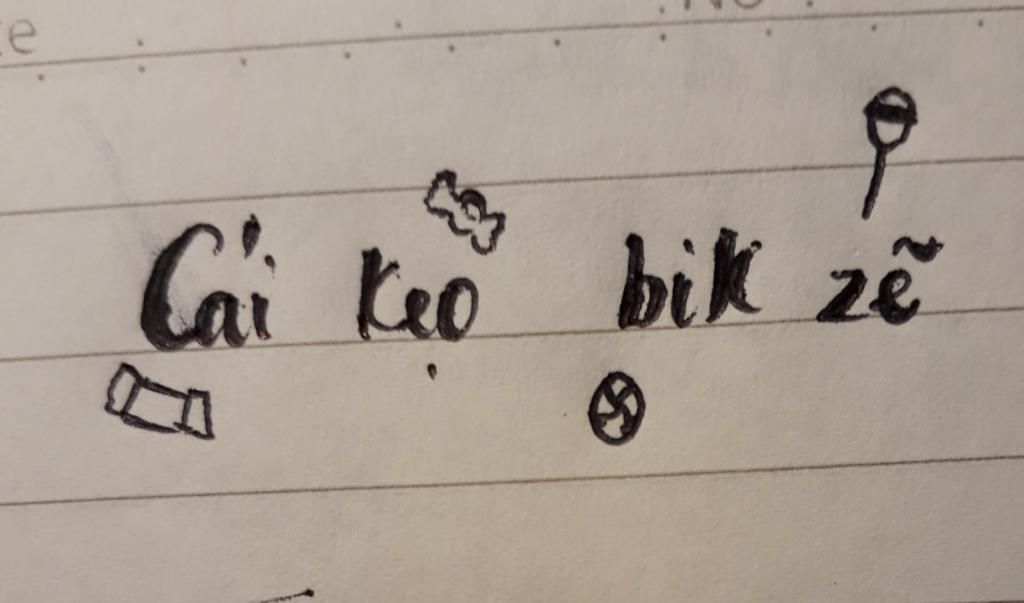 Cái kẹo bik zẽ